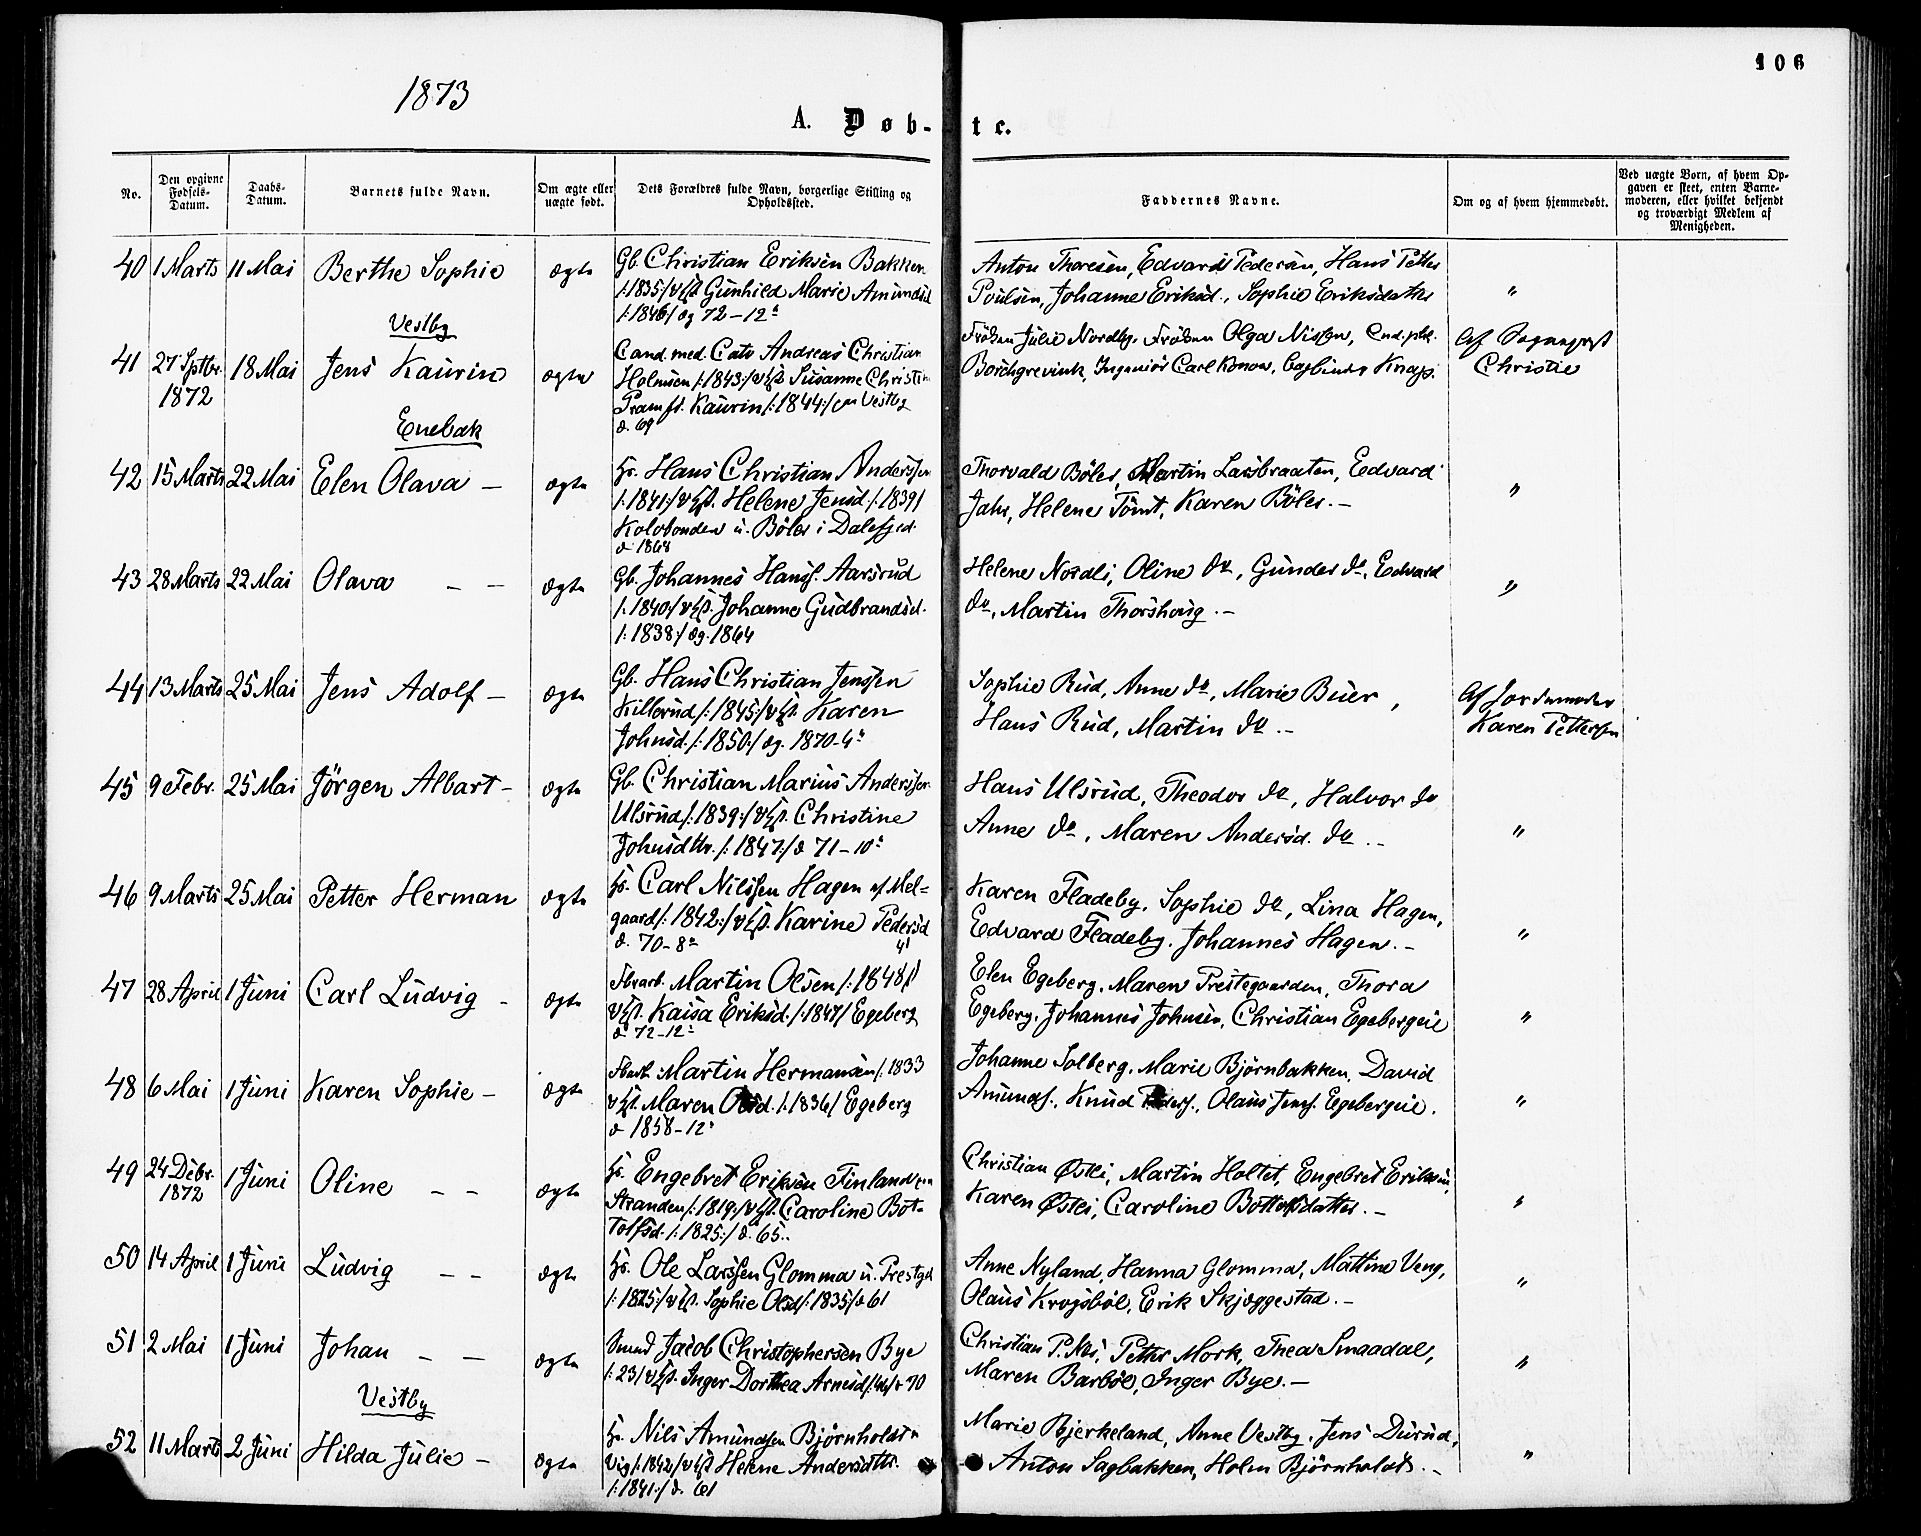 106
1873
A. Døb-te.
No.
Den opgivne Fødsels-Datum.
Daabs-Datum.
Barnets fulde Navn.
Om ægte eller uægte født.
Dets Forældres fulde Navn, borgerlige Stilling og Opholdssted.
Faddernes Navne.
Om og af hvem hjemmedøbt.
Ved uægte Børn, af hvem Opgaven er skeet, enten Barnemoderen, eller hvilket bekjendt og troværdigt Medlem af Menigheden.
40 1 Marts 11 Mai Berthe Sophie ægte
Gb. Christian Eriksen Bakken
/:1835:/ Gunhild Marie Amundsd
/:1846/ æg 72-12
Anton Thoresen, Edvard Pedersen, Hans Petter
Poulsen, Johanne Eriksd., Sophie Eriksdatter
"
Vestby
41 27 Sptbr. 1872 18 Mai Jens Kaurin ægte
Cand. med. Cato Andreas Christian
Holmsen /:1843:/ Susanne Christine
Pram ft. Kaurin /:1844:/ Vestby
69
Frøken Julie Nordby, Frøken Olga Nissen,
Borchgrevink, Ingeniør Carl Konow, Knap.
Af Sogneprest
Christie
Enebak
42 15 Marts 22 Mai Elen Olava – ægte
Hs. Hans Christian Anderssen
/:1841:/ Helene Jensd /:1839/
u. Böler i Dalefjed.
1868
Thorvald Böler, Martin Lassbraaten, Edvard
Jahr, Helene Tömt, Karen Böler. –
"
43 28 Marts 22 Mai Olava – – ægte
Gb. Johannes Hanss. Aarsrud
/:1840/ Johanne Gudbrandsd.
/:1838:/ æg. 1864
Helene Nordli, Oline do, Gunder do, Edvard
do, Martin Thorshoug. –
"
44 13 Marts 25 Mai Jens Adolf – ægte
Gb. Hans Christian Jenssen
Killerud /:1845:/ Karen
Johnsd. /:1850:/ æg. 1870-4
Sophie Rud, Anne do, Marie Buer,
Hans Rud, Martin do. –
Af Jordemoder
Karen Pettersen
45 9 Febr. 25 Mai Jörgen Albart – ægte
Gb. Christian Marius Anderssen
Ulsrud /:1839:/ Christine
Johnsdtr. /:1847:/ 71-10
Hans Ulsrud, Theodor do, Halvor do
Anne do, Maren Andersd. do. –
"
46 9 Marts 25 Mai Petter Herman ægte
Hs. Carl Nilssen Hagen Mel=
gaard /:1842:/ Karine Pedersd
70-8 41
Karen Fladeby, Sophie do, Lina Hagen,
Edvard Fladeby, Johannes Hagen. –
"
47 28 April 1 Juni Carl Ludvig – ægte
Fbrarb. Martin Olsen /:1848/
Kaisa Eriksd. /:1847/ Egeberg
72-12
Elen Egeberg, Maren Prestegaarden, Thora
Egeberg, Johannes Johnsen, Christian Egebergeie
"
48 6 Mai 1 Juni Karen Sophie – ægte
Martin Hermansen /:1833
Maren Olsd. /:1836/ Egeberg
1858-12
Johanne Solberg, Marie Bjørnbakken, David
Amunds., Knud Peders., Olaus Jens. Egebergeie.
"
49 24 Debr. 1872 1 Juni Oline – – ægte
Hs. Engebret Eriksen Finland
Stranden /:1819:/ Caroline Bot=
tolfsd. /:1825:/ 65.
Christian Østli, Martin Holtet, Engebret Eriksen,
Karen Østli, Caroline Bottolfsdatter. –
"
50 14 April 1 Juni Ludvig – – ægte
Hs. Ole Larssen Glomma u. Prestgd
/:1825:/ Sophie Olsd /:1835/ 61
Anne Nyland, Hanna Glomma, Mattine Veng,
Olaus Krogsböl, Erik Skjæggestad. –
"
51 2 Mai 1 Juni Johan – – ægte
Smed Jacob Christophersen Bye
/:23/ Inger Dorthea Arnesd 70
Christian P. Næs, Petter Mork, Thea Smaadal,
Maren Barböl, Inger Bye. –
"
Vestby
52 11 Marts 2 Juni Hilda Julie – ægte
Hs. Nils Amundsen Bjørnholdt
Vig /:1842/ Helene Andersdtr.
/:1841:/ 61
Marie Bjerkeland, Anne Vestby, Jens Durud,
Anton Sagbakken, Holm Bjørnholdt. –
"